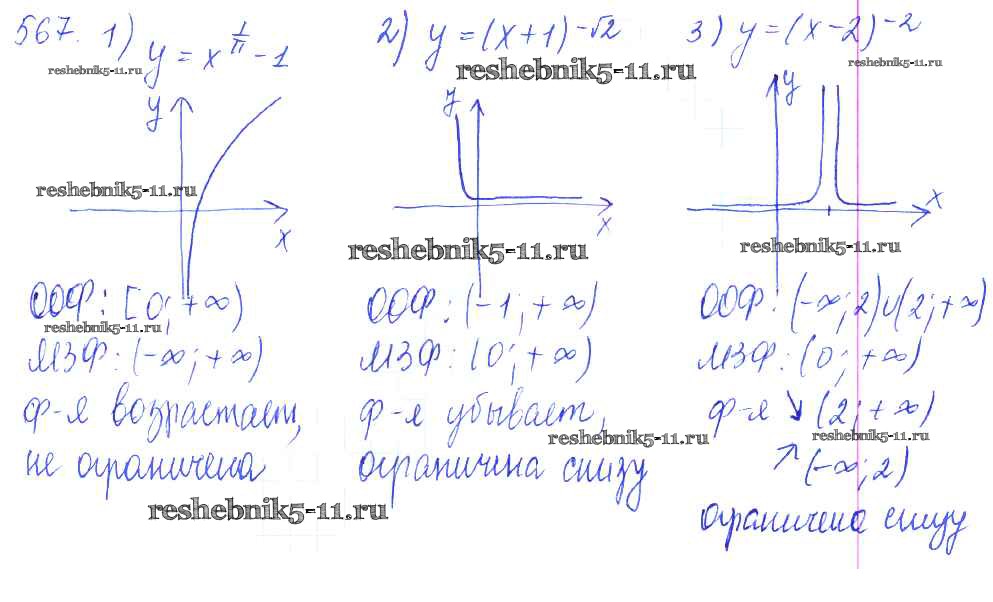 567. 1) y = x^(1/π) - 1
2) y = (x+1)^(-√2)
3) y = (x-2)^(-2)
reshebnik5-11.ru
reshebnik5-11.ru
reshebnik5-11.ru
y
y
y
reshebnik5-11.ru
x
x
x
reshebnik5-11.ru
reshebnik5-11.ru
ООФ: [0; +∞)
ООФ: (-1; +∞)
ООФ: (-∞; 2)∪(2; +∞)
reshebnik5-11.ru
МЗФ: (-∞; +∞)
МЗФ: (0; +∞)
МЗФ: (0; +∞)
ф-я возрастает,
ф-я убывает,
ф-я ↘ (2; +∞)
reshebnik5-11.ru
reshebnik5-11.ru
не ограничена
ограничина снизу
↗ (-∞; 2)
reshebnik5-11.ru
ограничена снизу